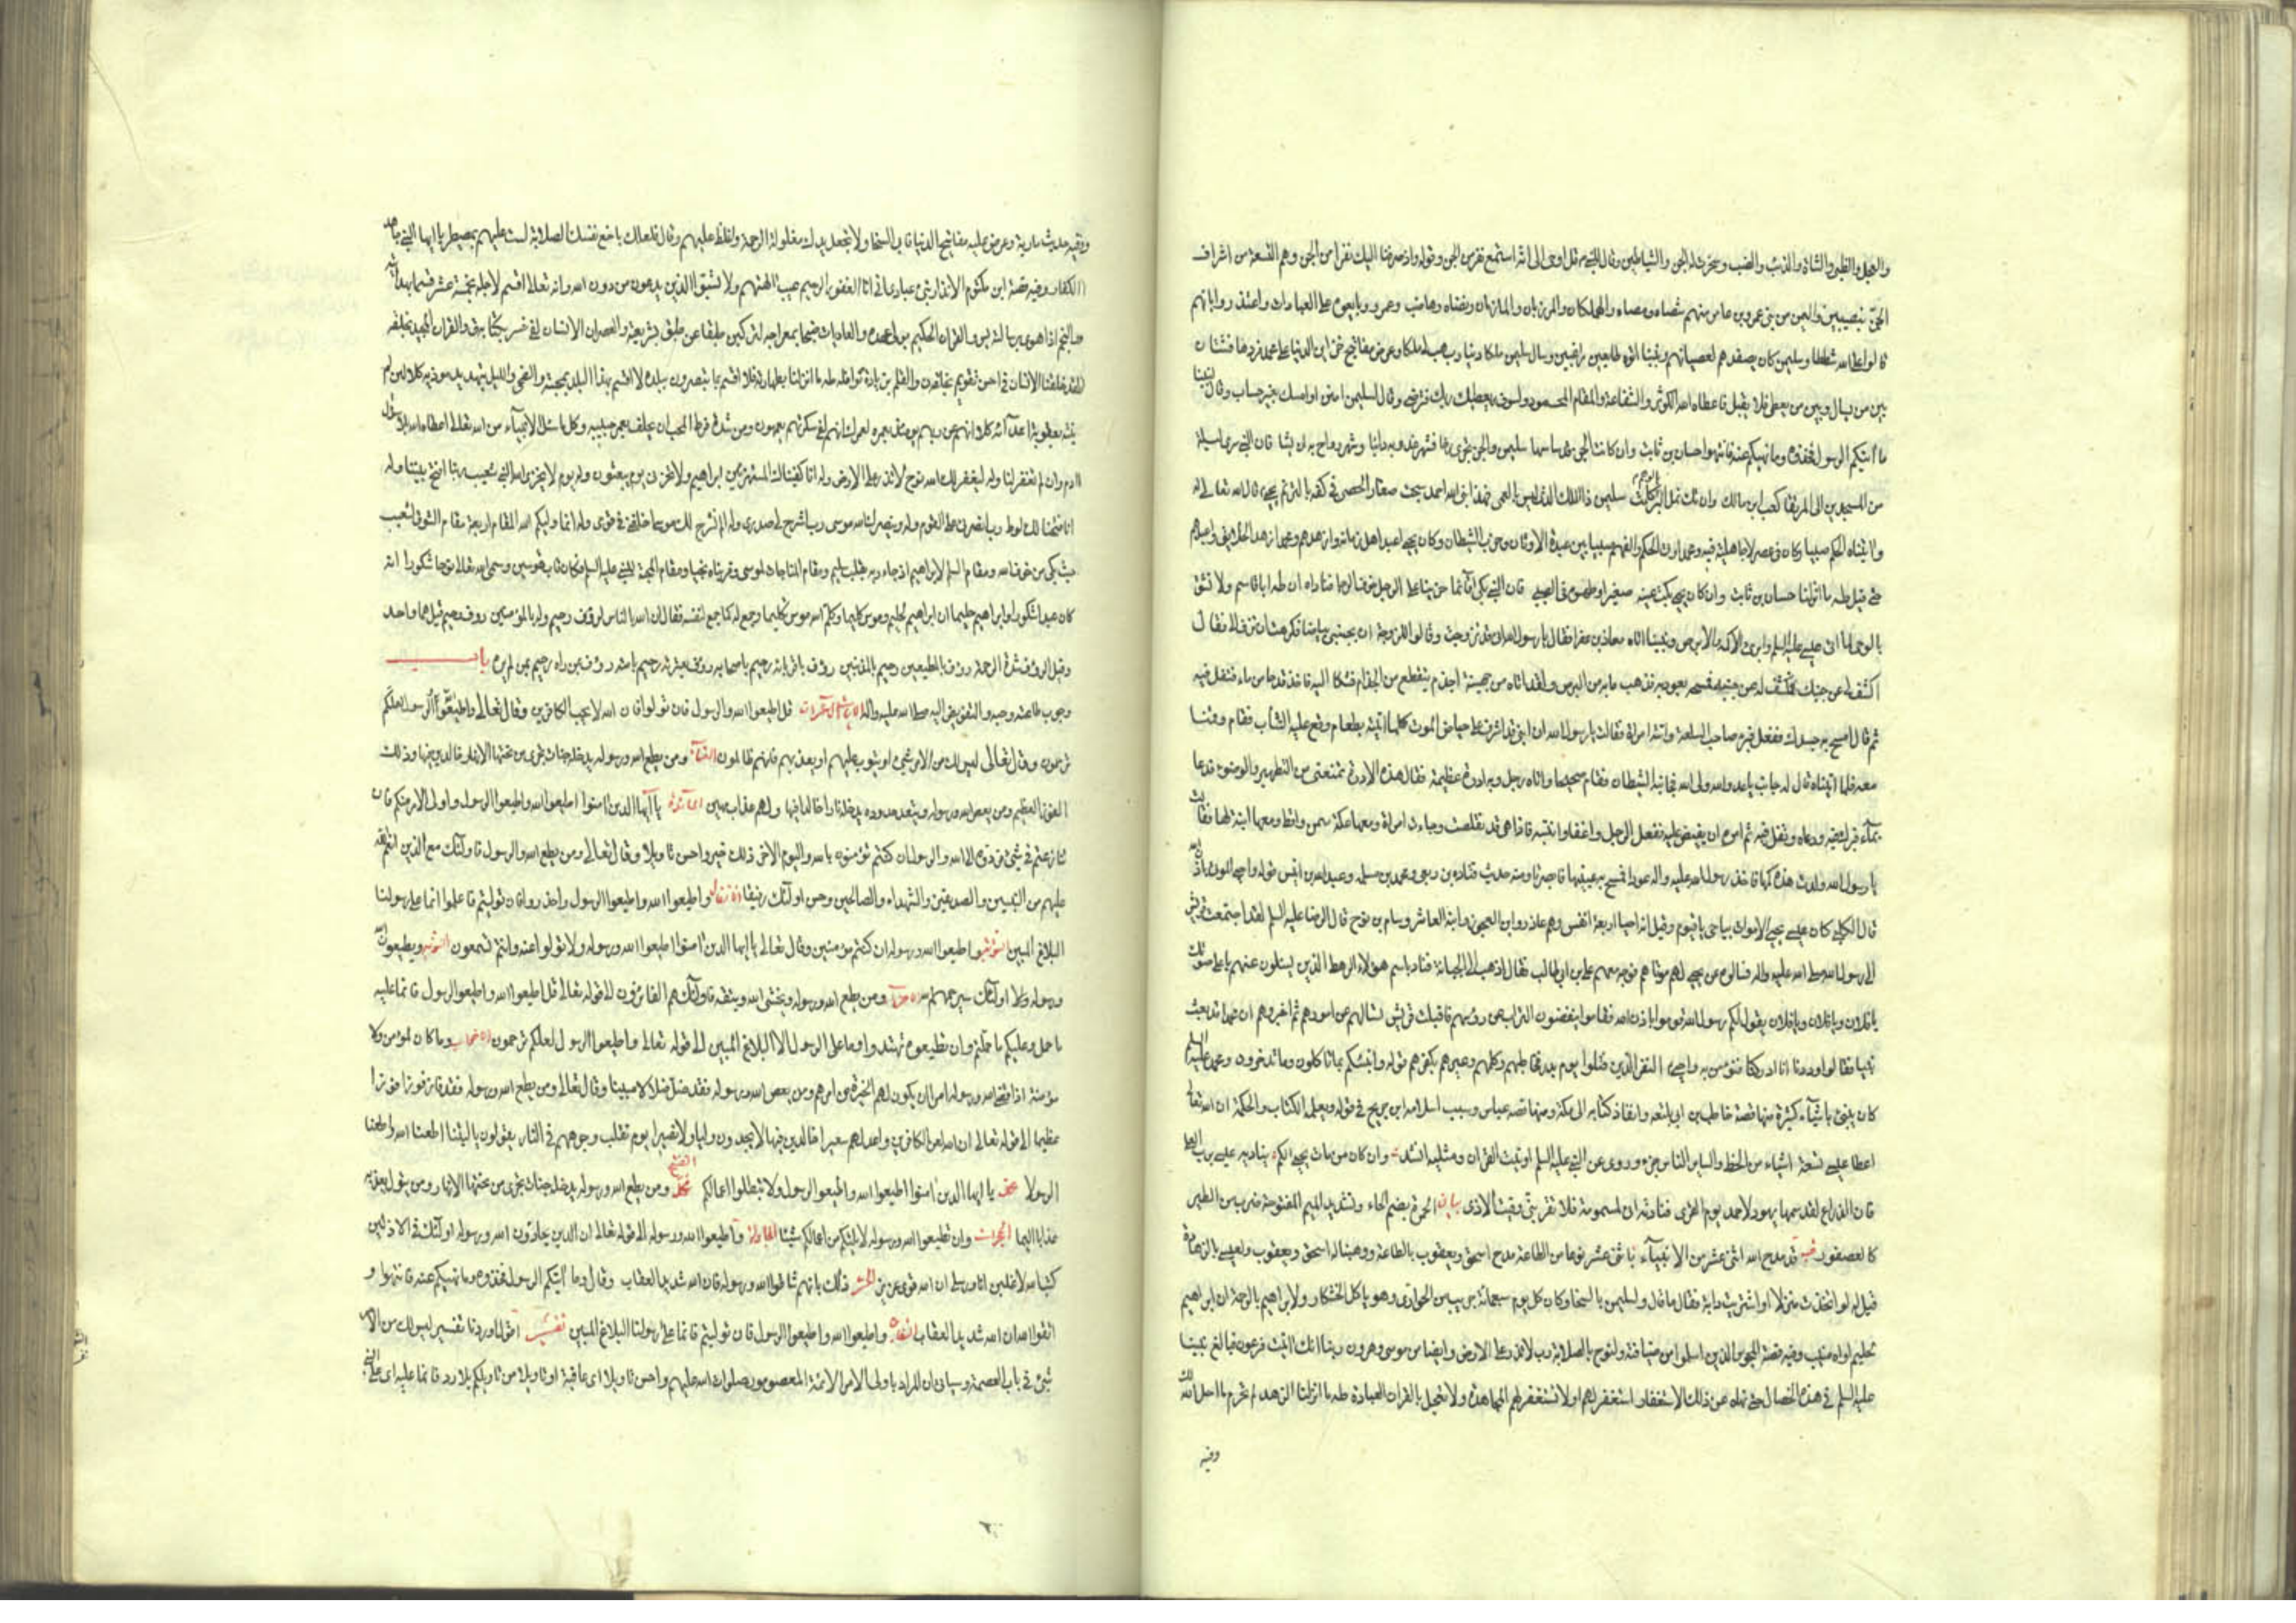 والعجل والظبى والشاة والذئب والضب وسخرت له الجن والشياطين وقال للنبى قل اوحى الى انه استمع نفر من الجن وقوله واذ صرفنا اليك نفرا من الجن وهم التسعة من اشراف
الجن بنصيبين واليمن من بنى عمرو بن عامر منهم شصاه ومصاه والهملكان والمرزبان والمازمان ونضاه وهاضب وعمرو وبايعوه على العبادات واعتذروا بانهم
قالوا على الله شططا وسليمن كان يصفدهم لعصيانهم ونبينا اتوه طايعين راغبين وسال سليمن ملكا دنيا رب هب لى ملكا وعرض مفاتيح خزاين الدنيا على محمد فردها فشتان
بين من يسال وبين من يعطى فلا يقبل فاعطاه الله الكوثر والشفاعة والمقام المحمود ولسوف يعطيك ربك فترضى وقال لسليمن امنن او امسك بغير حساب وقال لنبينا
ما آتيكم الرسول فخذوه وما نهيكم عنه فانتهوا حسان بن ثابت وان كانت الجن قد ساسها سليمن والجن تجرى رخا فشهر غدو به دايبا وشهر رواح به ان يشا فان النبى سرى ليلة
من المسجدين الى المرتقا كعب بن مالك وان تك نمل البر كلمت سليمن ذا الملك الذى ليس بالعمى فهذا نبى الله احمد سبحت صغار الحصى فى كفه بالترنم يحيى قال الله تعالى له
وآتيناه الحكم صبيا وكان فى عصر لا جاهلية فيه ومحمد اوتى الحكم والفهم صبيا بين عبدة الاوثان وحزب الشيطان وكان يحيى اعبد اهل زمانه وازهدهم ومحمد ازهد الخلايق واعبدهم
حتى قيل طه ما انزلنا حسان بن ثابت وان كان يحيى بكت عينه صغيرا وطهره فى الصبى فان النبى بكى قائما حزينا على الرجل خوف الرجا فناداه ان طه ابا قاسم ولا تشق
بالوحى لما اتى عيسى عليه السلم وابرئ الاكمه والابرص ونبينا اتاه معاذ بن عفرا فقال يا رسول الله انى قد تزوجت وقالوا للزوجة ان بجنبى بياضا فكرهت ان تزف الى فقال
اكشف لى عن جنبك فكشف له عن جنبه فمسحه بعود فذهب ما به من البرص ولقد اتاه من جهينة اجذم يتقطع من الجذام فشكا اليه فاخذ قدحا من ماء فتفل فيه
ثم قال امسح به جسدك ففعل فبرء صاحب السلعة واتت امراة فقالت يا رسول الله ان ابنى قد اشرف على حياض الموت كلما اتيته بطعام وقع عليه التثاب فقام وقمنا
معه فلما اتيناه قال له جانب يا عدو الله ولى الله فجانبه الشيطان فقام صحيحا واتاه رجل وبه ادرة عظيمة فقال هذه الادرة تمنعنى من التطهير والوضوء فدعا
بماء فبرك فيه ودعاه وتفل فيه ثم امره ان يفيض عليه ففعل الرجل واغفا فانتبه فاذا هى قد تقلصت وجاءت امراة ومعها عكة سمن واقط ومعها ابنة لها فقالت
يا رسول الله ولدت هذه كمها فاخذ رسول الله عليه واله عودا فمسح به عينيها فابصرتا ومنه حديث قتادة بن ربعى ومحمد بن مسلمة وعبد الله بن انيس قوله واحيى الموتى باذن الله
قال الكلبى كان عيسى يحيى الاموات بياحى ياقيوم وقيل انه احيا اربعة انفس وهم عاذر وابن العجوز وابنة العاشر وسام بن نوح قال الرضا عليه السلم لقد اجتمعت قريش
الى رسول الله صلى الله عليه واله فسالوه عن يحيى لهم موتاهم فوجه معهم على بن ابى طالب فقال اذهب الى الجبانة فناد باسم هؤلاء الرهط الذين يسئلون عنهم باعلى صوتك
يا فلان ويا فلان ويا فلان يقول لكم رسول الله قوموا باذن الله فقاموا ينفضون التراب عن رؤسهم فاقبلت قريش تسالهم عن امورهم ثم اخبروهم ان محمدا قد بعث
نبيا فقالوا وددنا انا ادركناه فنؤمن به واحيى النفر الذين قتلوا يوم بدر فخاطبهم وكلمهم وعيرهم بكفرهم قوله وانبئكم بما تاكلون وما تدخرون ومحمد عليه السلم
كان ينبئ باشياء كثيرة منها قصة حاطب بن ابى بلتعة وانفاذ كتابه الى مكة ومنها قصه عباس وسبب اسلامه ابن جريح فى قوله ويعلمه الكتاب والحكمة ان الله تعالى
اعطا عيسى تسعة اشياء من الحظ ولساير الناس جزء وروى عن النبى عليه السلم اوتيت القران ومثليه انشد وان كان من مات يحيى لكم يناديه عيسى برب العلى
فان الذراع لقد سمها يهود لاحمد يوم القرى فنادته ان لمسمومة فلا تقربنى وقيت الاذى بيان الحمرة بضم الحاء وتشديد الميم المفتوحة ضرب من الطير
كالعصفور قب قد مدح الله اثنى عشر من الانبياء باثنى عشر نوعا من الطاعة مدح اسحق ويعقوب بالطاعة ووهبنا له اسحق ويعقوب ولعيسى بالزهادة
قيل له لو اتخذت منزلا او اشتريت دابة فقال ما قال ولسليمن بالسخا وكان كل يوم سبعمائة جريب من الحوارى وهو ياكل الخشكار ولابراهيم بالرحمة ان ابراهيم
لحليم اواه منيب وفيه قصة المجوس الذين اسلموا من ضيافته ولنوح بالصلابة رب لا تذر على الارض وايضا من موسى وهرون ربنا انك اتيت فرعون فبالغ نبينا
عليه السلم فى هذه الخصال حتى نهاه عن ذلك الاستغفار استغفر لهم اولا تستغفر لهم المجاهدة ولا تعجل بالقران العبادة طه ما انزلنا الزهد لم تحرم ما احل الله لك
وفيه
وفيه حديث مارية وعرض عليه مفاتيح الدنيا فابى السخا ولا تجعل يدك مغلولة الرحمة واغلظ عليهم وقال فلعلك باخع نفسك الصلابة لست عليهم بمصيطر يا ايها النبى جاهد
الكفار وفيه قصة ابن مكتوم الانذار نبئ عبادى انى انا الغفور الرحيم عيب الهتهم ولا تسبوا الذين يدعون من دون الله وانه تعالى اقسم لاجله بخمسة عشر قسما
والنجم اذا هوى يس والقران الحكيم والعاديات ضبحا لتركبن طبقا عن طبق والعصر ان الانسان لفى خسر ق والقران المجيد
لقد خلقنا الانسان فى احسن تقويم طه ما انزلنا بطهارته فلا اقسم بما تبصرون لا اقسم بهذا البلد والضحى والليل كلا لئن لم
ادم وان لم تغفر لنا وله ليغفر لك الله نوح لا تذر على الارض وله انا كفيناك المستهزئين ابراهيم ولا تخزنى يوم يبعثون وله يوم لا يخزى الله النبى شعيب ربنا افتح بيننا وله
انا فتحنا لك لوط رب انصرنى على القوم وله وينصرك الله موسى رب اشرح لى صدرى وله الم نشرح لك موسى اخلفنى فى قومى وله انما وليكم الله المقام اربعة مقام الشوق لشعيب
حيث بكى من خوف الله ومقام السلم لابراهيم اذ جاء ربه بقلب سليم ومقام المناجات لموسى وقربناه نجيا ومقام المحبة للنبى عليه السلم فكان قاب قوسين وسمى الله تعالى نوحا شكورا انه
كان عبدا شكورا وابراهيم حليما ان ابراهيم لحليم وموسى كليما وكلم الله موسى تكليما وجمع له كما جمع لنفسه فقال ان الله بالناس لرؤف رحيم وله بالمؤمنين رؤف رحيم قيل هما واحد
وقيل الرؤف شدة الرحمة رؤف بالمطيعين رحيم بالمذنبين رؤف باقربائه رحيم باصحابه رؤف بعترته رحيم بامته رؤف بمن راه رحيم بمن لم يره باب
وجوب طاعته وحبه والتفويض اليه صلى الله عليه واله الايات آل عمران قل اطيعوا الله والرسول فان تولوا فان الله لا يحب الكافرين وقال تعالى واطيعوا الله والرسول لعلكم
ترحمون وقال تعالى ليس لك من الامر شىء او يتوب عليهم او يعذبهم فانهم ظالمون النساء ومن يطع الله ورسوله يدخله جنات تجرى من تحتها الانهار خالدين فيها وذلك
الفوز العظيم ومن يعص الله ورسوله ويتعد حدوده يدخله نارا خالدا فيها وله عذاب مهين المائدة يا ايها الذين امنوا اطيعوا الله واطيعوا الرسول واولى الامر منكم فان
تنازعتم فى شىء فردوه الى الله والرسول ان كنتم تؤمنون بالله واليوم الاخر ذلك خير واحسن تاويلا وقال تعالى ومن يطع الله والرسول فاولئك مع الذين انعم الله
عليهم من النبيين والصديقين والشهداء والصالحين وحسن اولئك رفيقا الانفال واطيعوا الله واطيعوا الرسول واحذروا فان توليتم فاعلموا انما على رسولنا
البلاغ المبين واطيعوا الله ورسوله ان كنتم مؤمنين وقال تعالى يا ايها الذين امنوا اطيعوا الله ورسوله ولا تولوا عنه وانتم تسمعون التوبه ويطيعون الله
ورسوله اولئك سيرحمهم الله ومن يطع الله ورسوله ويخشى الله ويتقه فاولئك هم الفائزون الى قوله تعالى قل اطيعوا الله واطيعوا الرسول فانما عليه
ما حمل وعليكم ما حملتم وان تطيعوه تهتدوا وما على الرسول الا البلاغ المبين الى قوله تعالى واطيعوا الرسول لعلكم ترحمون الاحزاب وما كان لمؤمن ولا
مؤمنة اذا قضى الله ورسوله امرا ان يكون لهم الخيرة من امرهم ومن يعص الله ورسوله فقد ضل ضلالا مبينا وقال تعالى ومن يطع الله ورسوله فقد فاز فوزا
عظيما الى قوله تعالى ان الله لعن الكافرين واعد لهم سعيرا خالدين فيها لا يجدون وليا ولا نصيرا يوم تقلب وجوههم فى النار يقولون يا ليتنا اطعنا الله واطعنا
الرسولا محمد يا ايها الذين امنوا اطيعوا الله واطيعوا الرسول ولا تبطلوا اعمالكم الفتح ومن يطع الله ورسوله يدخله جنات تجرى من تحتها الانهار ومن يتول يعذبه
عذابا اليما الحجرات وان تطيعوا الله ورسوله لا يلتكم من اعمالكم شيئا المجادلة واطيعوا الله ورسوله الى قوله تعالى ان الذين يحادون الله ورسوله اولئك فى الاذلين
كتب الله لاغلبن انا ورسلى ان الله قوى عزيز الحشر ذلك بانهم شاقوا الله ورسوله فان الله شديد العقاب وقال وما آتيكم الرسول فخذوه وما نهيكم عنه فانتهوا و
اتقوا الله ان الله شديد العقاب التغابن واطيعوا الله واطيعوا الرسول فان توليتم فانما على رسولنا البلاغ المبين تفسير اقول اوردنا تفسير ليس لك من الامر
شىء فى باب العصمة وسياتى ان المراد باولى الامر الائمة المعصومون صلوات الله عليهم واحسن تاويلا اى عاقبة او تاويلا من تاويلكم بلا رد فانما عليه اى على النبى